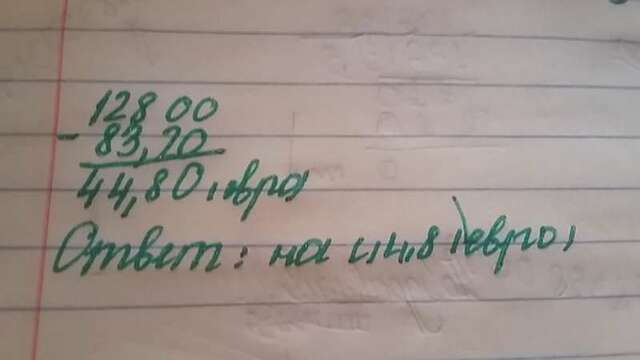 12800
- 83,20
44,80 (евро)
Ответ: на 44,8 (евро)